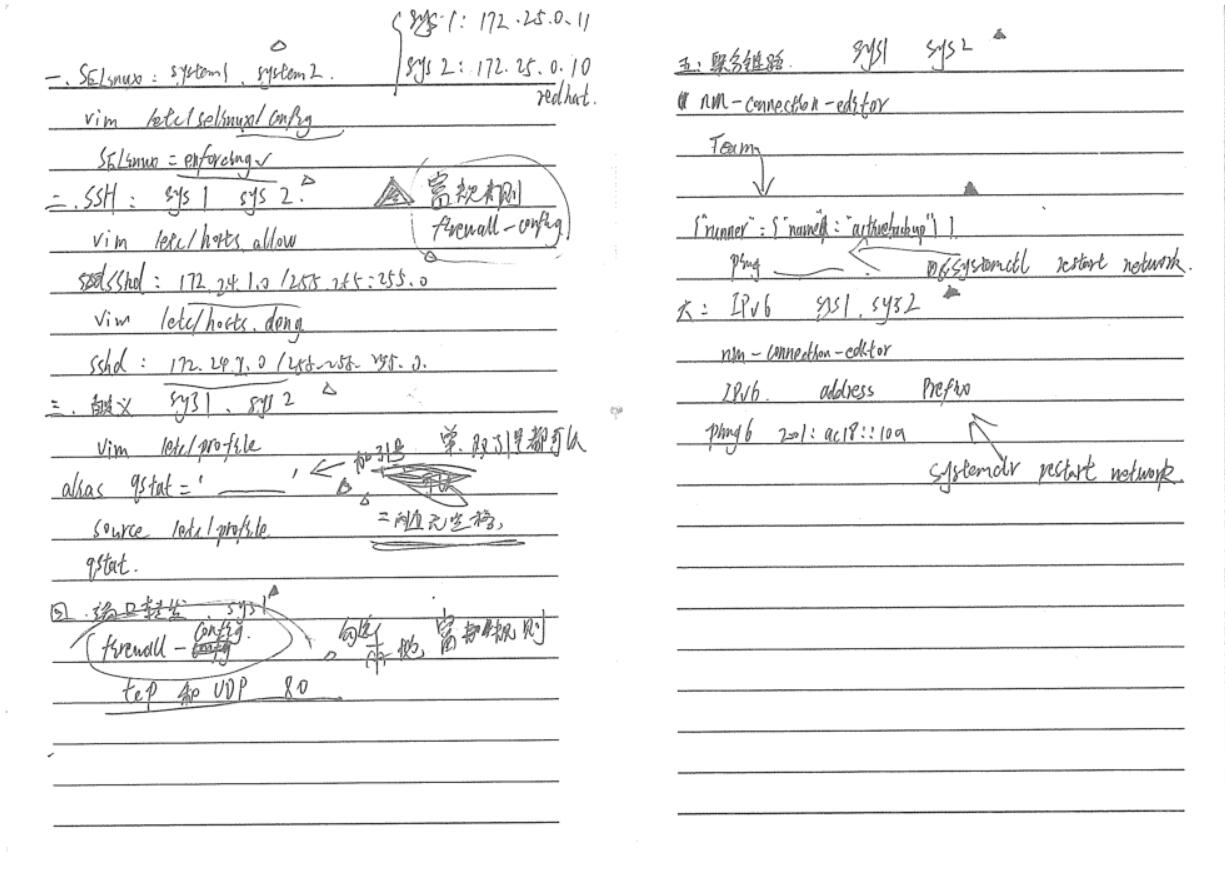 sys1: 172.25.0.11
sys2: 172.25.0.10
redhat.
一. SELinux: system1、system2.
vim /etc/selinux/config
SELinux = enforcing ✓
二. SSH: sys1 sys2.
富规则
firewall-config
vim /etc/hosts.allow
sshd: 172.24.1.0/255.255.255.0
vim /etc/hosts.deny
sshd: 172.24.1.0/255.255.255.0.
三. 自定义 sys1、sys2
vim /etc/profile
单.双引号都可以
alias qstat='______' ← 加引号
source /etc/profile
=间无空格,
qstat.
四.端口转发、sys1
firewall-config.
勾选 本地 富规则
tcp 和 UDP 80
五: 聚合链路. sys1 sys2
nm-connection-editor
Team
{"runner":{"name":"activebackup"}}
ping ______ systemctl restart network.
六: IPv6 sys1、sys2
nm-connection-editor
IPv6. address Prefix
ping6 2001:ac18::10a
restart network.